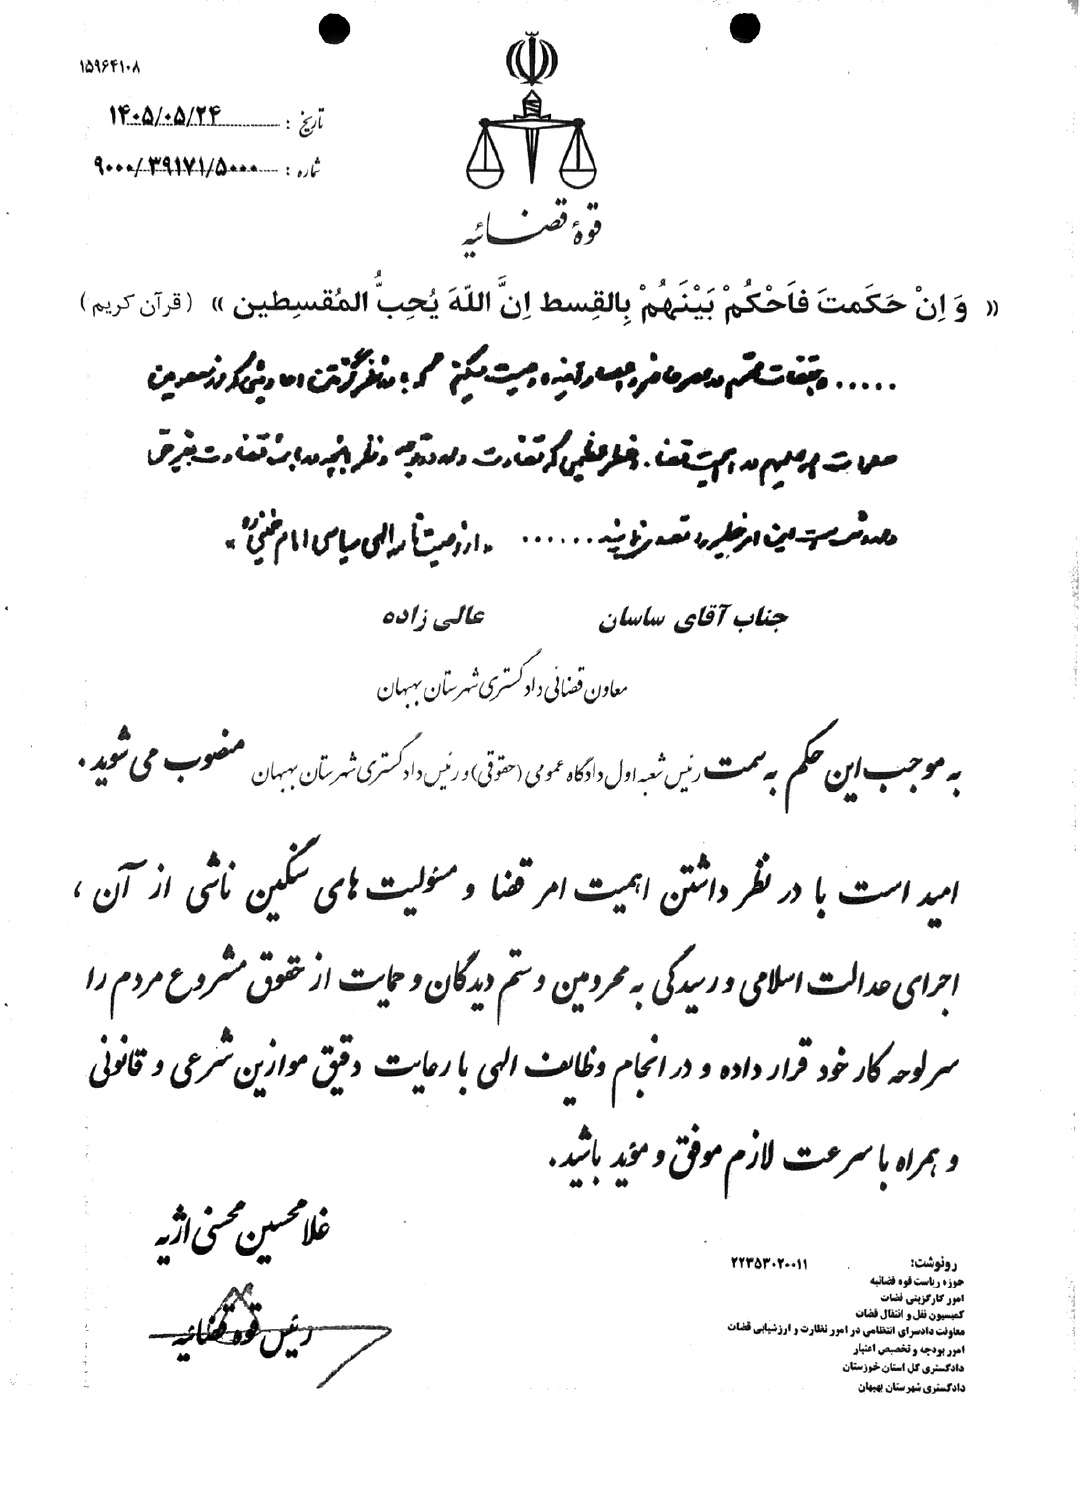 ۱۵۹۶۴۱۰۸
تاریخ : ۱۴۰۵/۰۵/۲۴
شماره : ۹۰۰۰/۳۹۱۷۱/۵۰۰۰
قوهٔ قضائیه
« وَ اِنْ حَکَمتَ فَاَحْکُمْ بَیْنَهُمْ بِالقِسط اِنَّ اللّهَ یُحِبُّ المُقسِطین » ( قرآن کریم )
..... و بقضات محترم در عصر حاضر و اعصار آینده وصیت میکنم که با در نظر گرفتن احادیثی که از معصومین
صلوات الله علیهم در اهمیت قضا، و خطر عظیمی که قضاوت دارد و توجه و نظر بآنچه در باب قضاوت بغیر حق
وارد شده است این امر خطیر را تصدی نمایند ...... «از وصیت نامه الهی سیاسی امام خمینی ره»
جناب آقای ساسان عالی زاده
معاون قضائی دادگستری شهرستان بهبهان
به موجب این حکم به سمت رئیس شعبه اول دادگاه عمومی (حقوقی) و رئیس دادگستری شهرستان بهبهان منصوب می شوید .
امید است با در نظر داشتن اهمیت امر قضا و مسئولیت های سنگین ناشی از آن ،
اجرای عدالت اسلامی و رسیدگی به محرومین و ستم دیدگان و حمایت از حقوق مشروع مردم را
سرلوحه کار خود قرار داده و در انجام وظایف الهی با رعایت دقیق موازین شرعی و قانونی
و همراه با سرعت لازم موفق و مؤید باشید.
غلامحسین محسنی اژیه
رئیس قوه قضائیه
رونوشت: ۲۲۳۵۳۰۲۰۰۱۱
حوزه ریاست قوه قضائیه
امور کارگزینی قضات
کمیسیون نقل و انتقال قضات
معاونت دادسرای انتظامی در امور نظارت و ارزشیابی قضات
امور بودجه و تخصیص اعتبار
دادگستری کل استان خوزستان
دادگستری شهرستان بهبهان